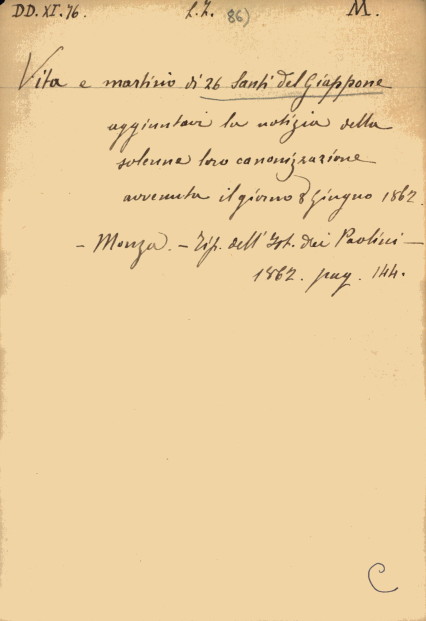 DD. XI. 76. L. Z. 86) M.
Vita e martirio di 26 Santi del Giappone
aggiuntavi la notizia della
solenne loro canonizzazione
avvenuta il giorno 8 Giugno 1862.
- Monza. - Tip. dell' Ist. dei Paolini -
1862. pag. 144.
C